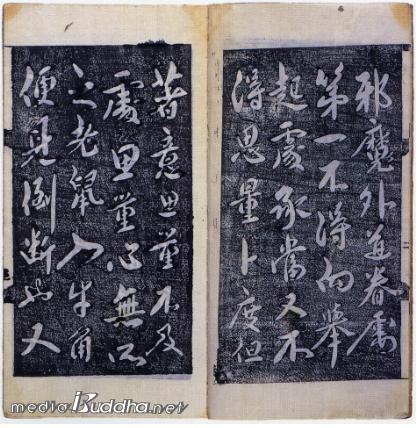 邪魔外道眷屬
第一不得向舉
起處承當又不
得思量卜度但
著意思量不及
處思量心無所
之老鼠入牛角
便見倒斷也又
media.Buddha.net